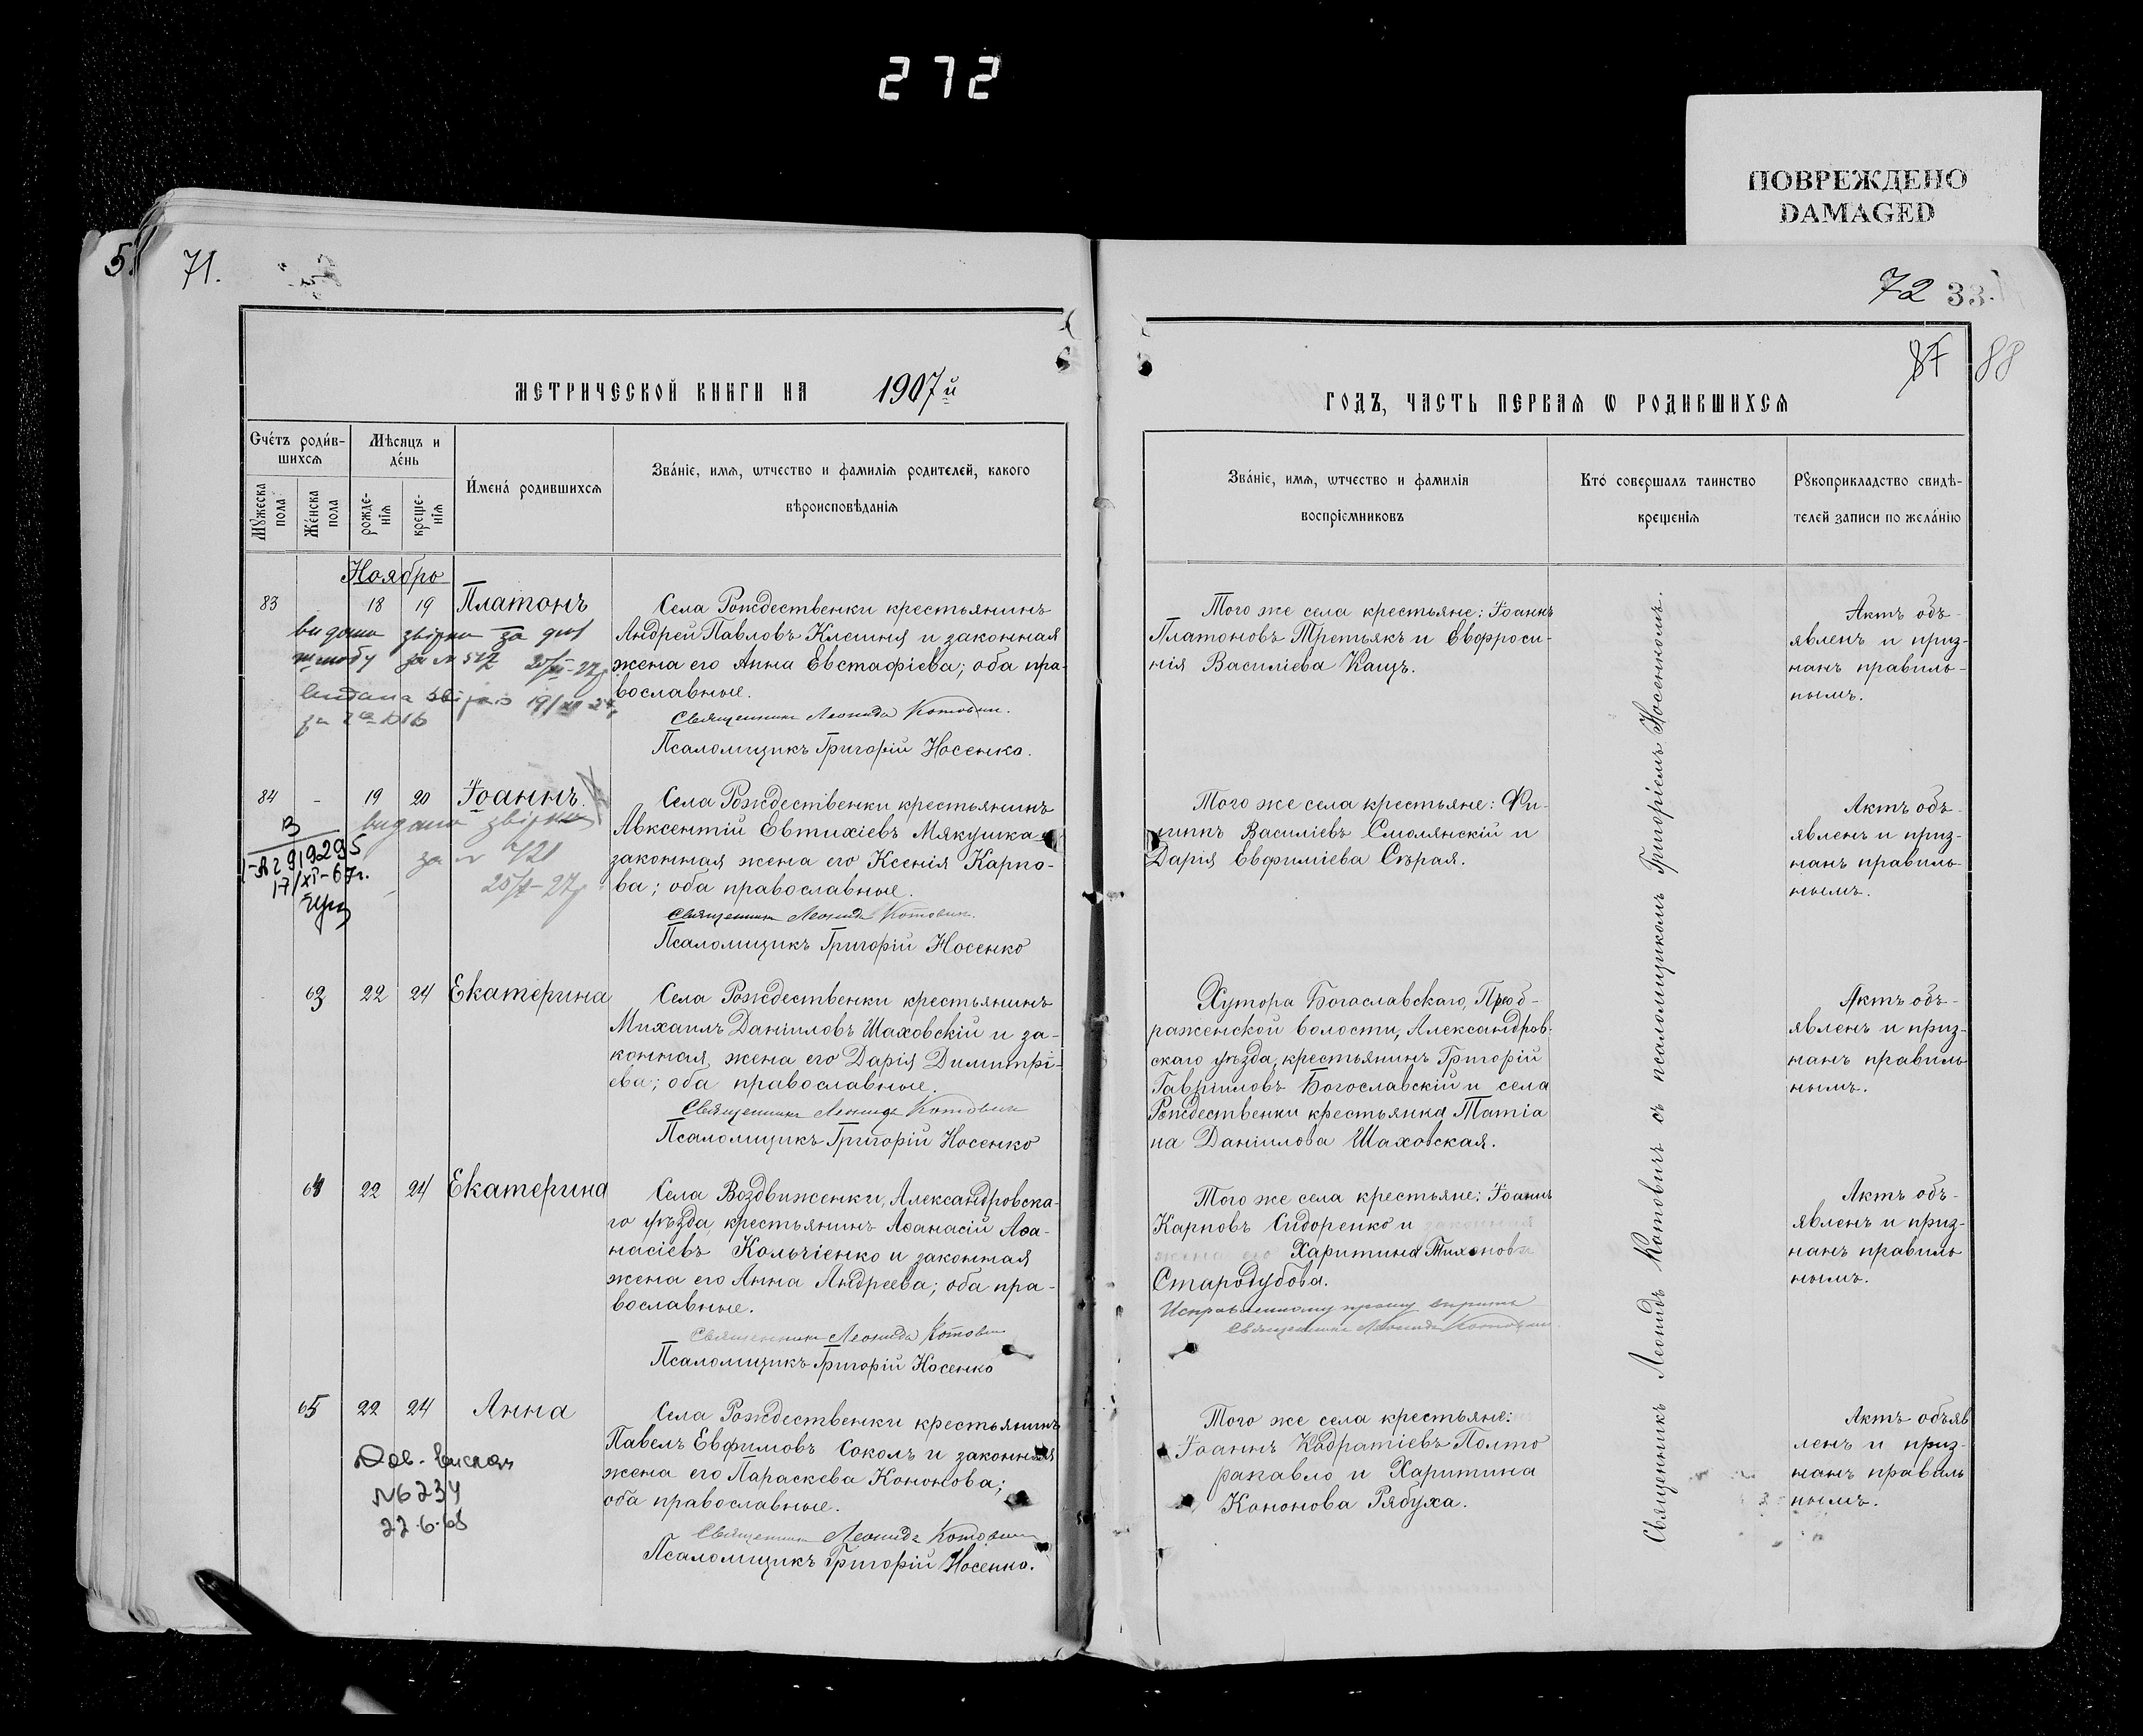 272
ПОВРЕЖДЕНО
DAMAGED
71.
72 33.
88
МЕТРИЧЕСКОЙ КНИГИ НА 1907й
ГОДЪ, ЧАСТЬ ПЕРВАЯ Ѡ РОДИВШИХСЯ
Счéтъ роди́в-
шихсѧ
Мѣсяцъ и
дéнь
И́мена́ родившихсѧ
Зва́нїе, имѧ, ѡтчество и фамилїѧ родителей, какого
вѣроисповѣданїѧ
Мꙋжеска
пола
Же́нска
пола
рожде-
нїѧ
креще-
нїѧ
Зва́нїе, имѧ, ѡтчество и фамилїѧ
воспрїемниковъ
Кто́ совершалъ таинство
крещенїѧ
Рꙋкоприкладство свидѣ-
телей записи по жела́нїю
Ноябрь
83 18 19 Платонъ
Села Рождественки крестьянинъ
Андрей Павловъ Клешня и законная
жена его Анна Евстафіева; оба пра-
вославные.
Священникъ Леонидъ Котовичъ.
Псаломщикъ Григорій Носенко.
Того же села крестьяне: Іоаннъ
Платоновъ Третьякъ и Евфроси-
нія Василіева Кащъ.
Актъ объ-
явленъ и приз-
нанъ правиль-
нымъ.
84 - 19 20 Іоаннъ.
видано звірки
за № 721
17/XI-67г.
Села Рождественки крестьянинъ
Авксентій Евтихіевъ Мякушка
законная жена его Ксенія Карпо-
ва; оба православные.
Священникъ Леонидъ Котовичъ.
Псаломщикъ Григорій Носенко
Того же села крестьяне: Фи-
липпъ Василіевъ Смолянскій и
Дарія Евфиміева Сѣрая.
Актъ объ-
явленъ и приз-
нанъ правиль-
нымъ.
63 22 24 Екатерина
Села Рождественки крестьянинъ
Михаилъ Даніиловъ Шаховскій и за-
конная жена его Дарія Димитрі-
ева; оба православные.
Священникъ Леонидъ Котовичъ
Псаломщикъ Григорій Носенко
Хутора Богославскаго,
раженской волости, Александров-
скаго уѣзда, крестьянинъ Григорій
Гавріиловъ Богославскій и села
Рождественки крестьянка Татіа
на Даніилова Шаховская.
Актъ объ-
явленъ и приз-
нанъ правиль
нымъ.
64 22 24 Екатерина
Села Воздвиженки, Александровска-
го уѣзда, крестьянинъ Аѳанасій Аѳа-
насіевъ Кольчіенко и законная
жена его Анна Андреева; оба пра-
вославные.
Священникъ Леонидъ Котовичъ
Псаломщикъ Григорій Носенко
Того же села крестьяне: Іоаннъ
Карповъ Сидоренко и
Харитина Тихонова
Стародубова.
Исправленному прошу вѣрить
Священникъ Леонидъ Котовичъ
Актъ объ-
явленъ и приз-
нанъ правиль
нымъ.
65 22 24 Анна
№6234
22.6.68
Села Рождественки крестьянинъ
Павелъ Евфимовъ Соколъ и законная
жена его Параскева Кононова;
оба православные.
Священникъ Леонидъ Котовичъ
Псаломщикъ Григорій Носенко.
Того же села крестьяне:
Іоаннъ Кодратіевъ Полто
рапавло и Харитина
Кононова Рябуха.
Актъ объяв
ленъ и приз-
нанъ правиль
нымъ.
Священникъ Леонидъ Котовичъ съ псаломщикомъ Григоріемъ Носенкомъ.